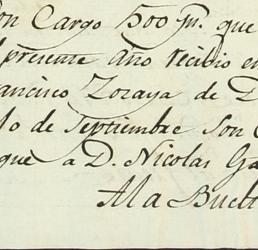 on Cargo 500 Jn. que
l presente año recibio en
ancisco Zoraya de D
lo de Septiembre son C
que a D. Nicolas Ga
A la Buelt